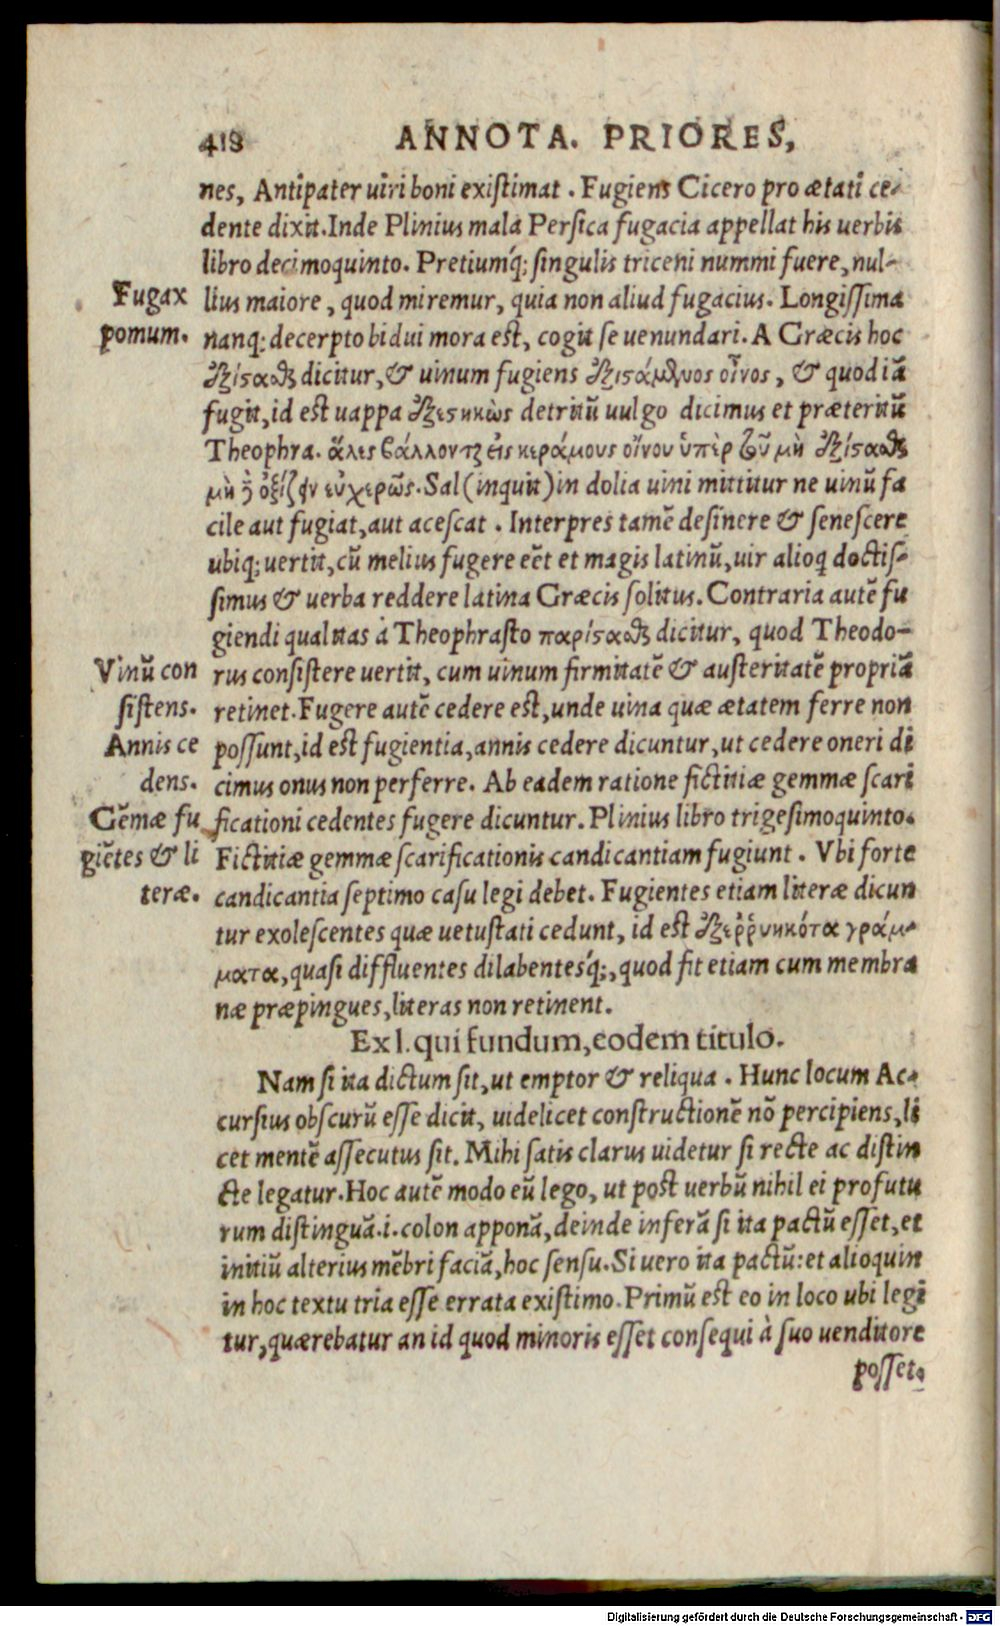 418 ANNOTA. PRIORES,
nes, Antipater uiri boni existimat. Fugiens Cicero pro ætati ce-
dente dixit. Inde Plinius mala Persica fugacia appellat his uerbis
libro decimoquinto. Pretiumq́; singulis triceni nummi fuere, nul-
Fugax
pomum.
lius maiore, quod miremur, quia non aliud fugacius. Longissima
nanq; decerpto bidui mora est, cogit se uenundari. A Græcis hoc
ἐξίσαθς dicitur, & uinum fugiens ἐξισάμενος οἶνος, & quod iā
fugit, id est uappa ἐξεσηκὼς detritū uulgo dicimus et præteritū
Theophra. ἅλες βάλλονται εἰς κεράμους οἴνου ὑπὲρ τοῦ μὴ ἐξίσαθαι
μὴ δ' ὀξίζειν εὐχερῶς. Sal (inquit) in dolia uini mittitur ne uinū fa
cile aut fugiat, aut acescat. Interpres tamē desinere & senescere
ubiq; uertit, cū melius fugere eēt et magis latinū, uir alioq doctis-
simus & uerba reddere latina Græcis solitus. Contraria autē fu
giendi qualitas à Theophrasto παρίσαθαι dicitur, quod Theodo-
Vinū con
sistens.
Annis ce
dens.
Gēmæ fu
giētes & li
teræ.
rus consistere uertit, cum uinum firmitatē & austeritatē propriā
retinet. Fugere autē cedere est, unde uina quæ ætatem ferre non
possunt, id est fugientia, annis cedere dicuntur, ut cedere oneri di
cimus onus non perferre. Ab eadem ratione fictitiæ gemmæ scari
ficationi cedentes fugere dicuntur. Plinius libro trigesimoquinto.
Fictitiæ gemmæ scarificationis candicantiam fugiunt. Vbi forte
candicantia septimo casu legi debet. Fugientes etiam literæ dicun
tur exolescentes quæ uetustati cedunt, id est ἐξερῤυηκότα γράμ-
ματα, quasi diffluentes dilabentesq́;, quod fit etiam cum membra
næ præpingues, literas non retinent.
Ex l. qui fundum, eodem titulo.
Nam si ita dictum sit, ut emptor & reliqua. Hunc locum Ac-
cursius obscurū esse dicit, uidelicet constructionē nō percipiens, li
cet mentē assecutus sit. Mihi satis clarus uidetur si recte ac distin
cte legatur. Hoc autē modo eū lego, ut post uerbū nihil ei profutu
rum distinguā. i. colon apponā, deinde inferā si ita pactū esset, et
initiū alterius mēbri faciā, hoc sensu. Si uero ita pactū: et alioquin
in hoc textu tria esse errata existimo. Primū est eo in loco ubi legi
tur, quærebatur an id quod minoris esset consequi à suo uenditore
posset.
Digitalisierung gefördert durch die Deutsche Forschungsgemeinschaft - DFG